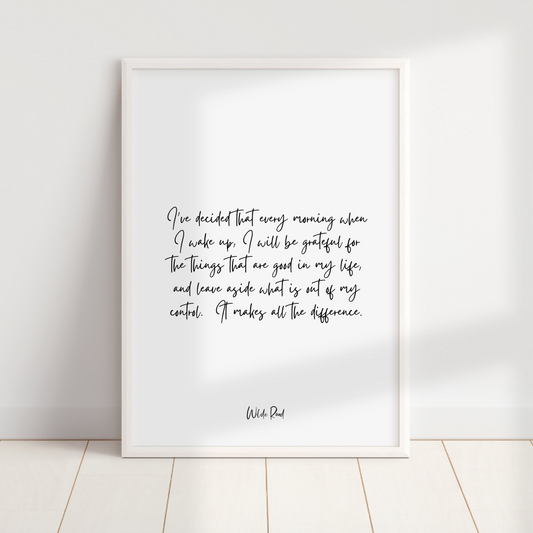 I've decided that every morning when
I wake up, I will be grateful for
the things that are good in my life,
and leave aside what is out of my
control. It makes all the difference.
Wilde Road